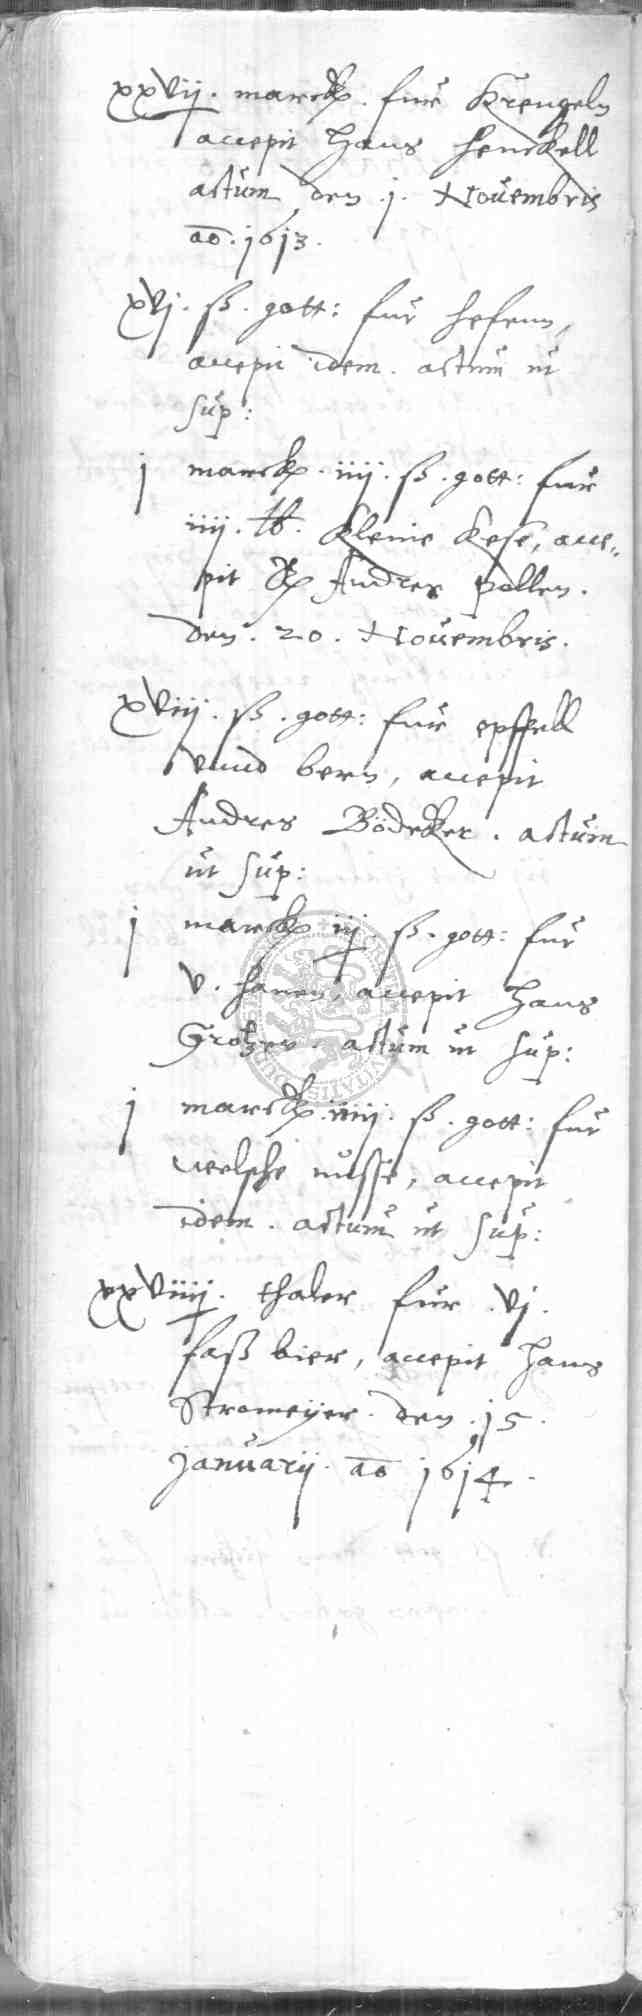 xxvij. marck. für Krengeln
accepit Hans Henckell
actum den .j. Novembris
ao. 1613.
xvj. ß. gott: für hefenn,
accepit idem. actum ut
sup:
j marck. iiij. ß. gott: für
iiij. lb. kleine kese, acce„
pit Andres Pollen.
den. 20. Novembris.
xviij. ß. gott: für epffell
vnnd bern, accepit
Andres Bödeker. actum
ut sup:
j marck iij ß. gott: für
v. hanen, accepit Hans
Grotzer. actum ut sup:
j marck. iiiij. ß. gott: für
welsche nusse, accepit
idem. actum ut sup:
xxviiij. thaler für .vj.
faß bier, accepit Hans
Stromeijer. den .15.
januarij. ao 1614.